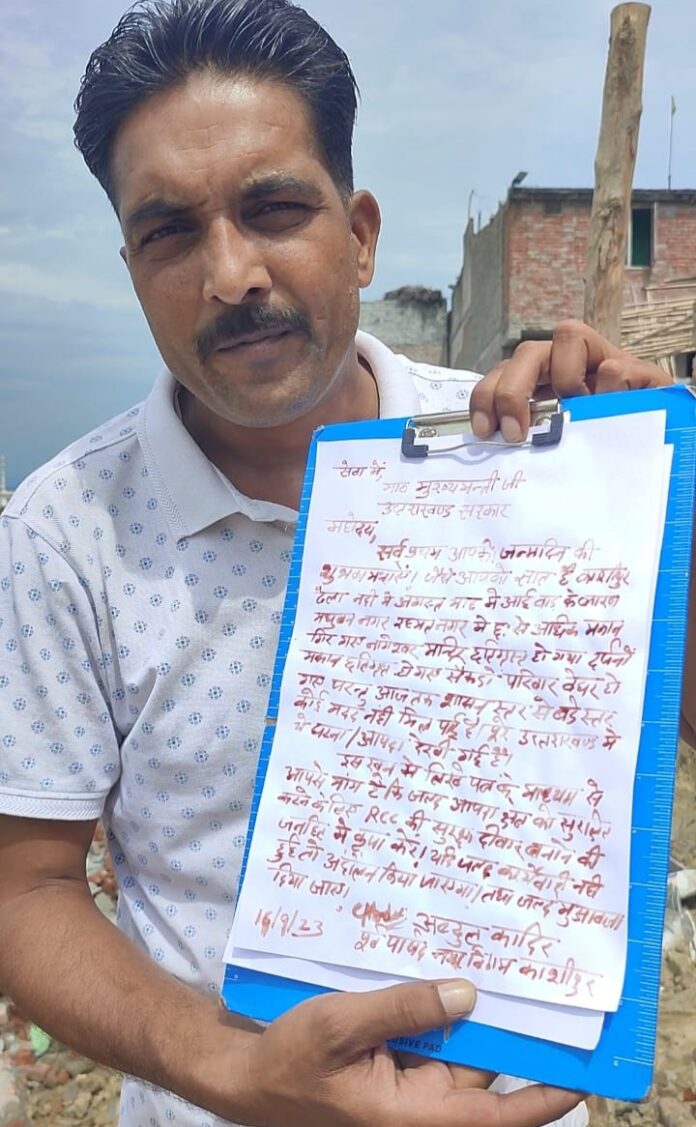 सेवा में,
मा० मुख्यमन्त्री जी
उत्तराखण्ड सरकार
महोदय,
सर्वप्रथम आपको जन्मदिन की
शुभकामनायें। जैसे आपको ज्ञात है काशीपुर
ढेला नदी मे अगस्त माह मे आई बाढ़ के कारण
मधुबन नगर मे से अधिक मकान
गिर गए नागेश्वर मन्दिर हो गया दर्जनों
मकान हो गए सैकडों परिवार बेघर हो
गए परन्तु आज तक शासन स्तर से बडे स्तर
कोई मदद नही मिल पाई है। पूरे उत्तराखण्ड मे
ये घटना/आपदा देखी गई है।
इस खून से लिखे पत्र के माध्यम से
आपसे मांग है कि जल्द आपदा क्षेत्र को सुरक्षित
करने के लिए RCC की सुरक्षा दीवार बनाने की
जनहित मे कृपा करें। यदि जल्द कार्यवाही नही
हुई तो आंदोलन किया जाएगा। तथा जल्द मुआवजा
दिया जाए।
16/9/23 अब्दुल कादिर
पूर्व पार्षद नगर निगम काशीपुर
USIVE PAD